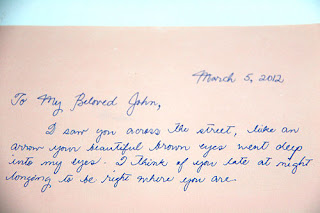 March 5, 2012
To My Beloved John,
I saw you across the street, like an
arrow your beautiful brown eyes went deep
into my eyes. I think of you late at night
longing to be right where you are.